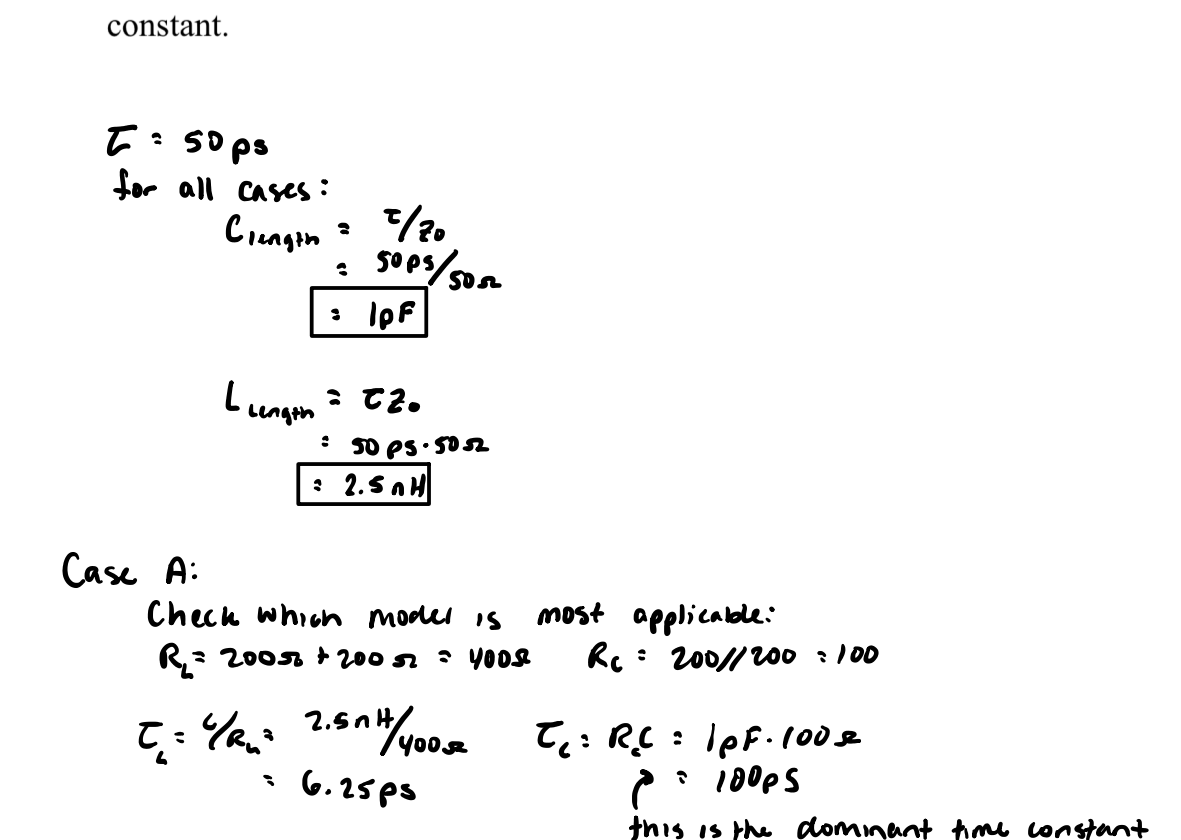 constant.
τ = 50 ps
for all cases:
C length = τ/Z0
= 50ps/50Ω
= 1pF
L Length = τZ0
= 50 ps·50Ω
= 2.5nH
Case A:
Check which model is most applicable:
RL = 200Ω + 200Ω = 400Ω RC = 200//200 = 100
τL = L/RL = 2.5nH/400Ω τC = RCC = 1pF·100Ω
= 6.25ps = 100ps
this is the dominant time constant